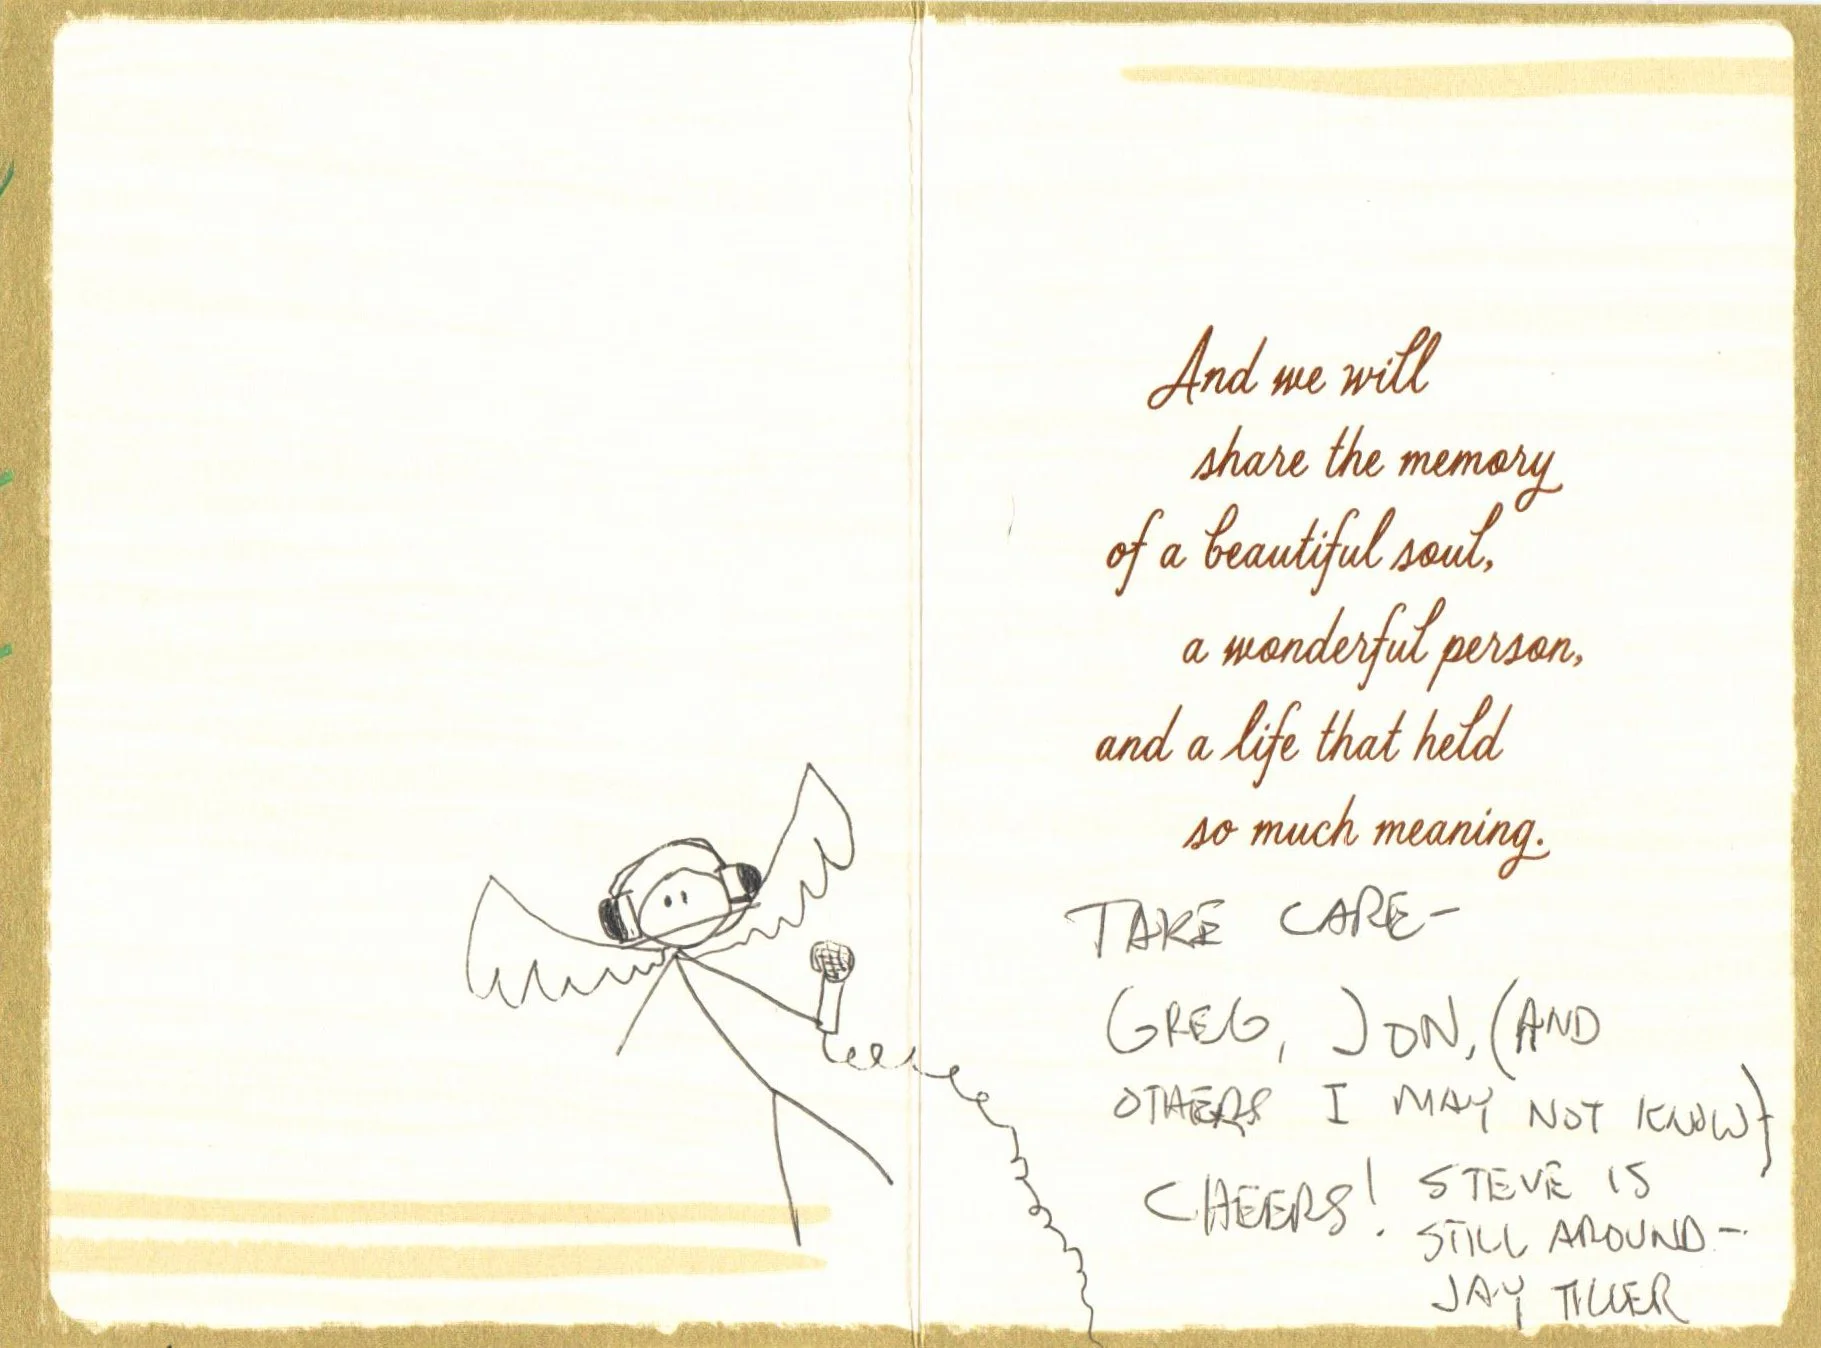 And we will
share the memory
of a beautiful soul,
a wonderful person,
and a life that held
so much meaning.
TAKE CARE-
GREG, JON, (AND
OTHERS I MAY NOT KNOW)
CHEERS! STEVE IS
STILL AROUND-
JAY TILLER